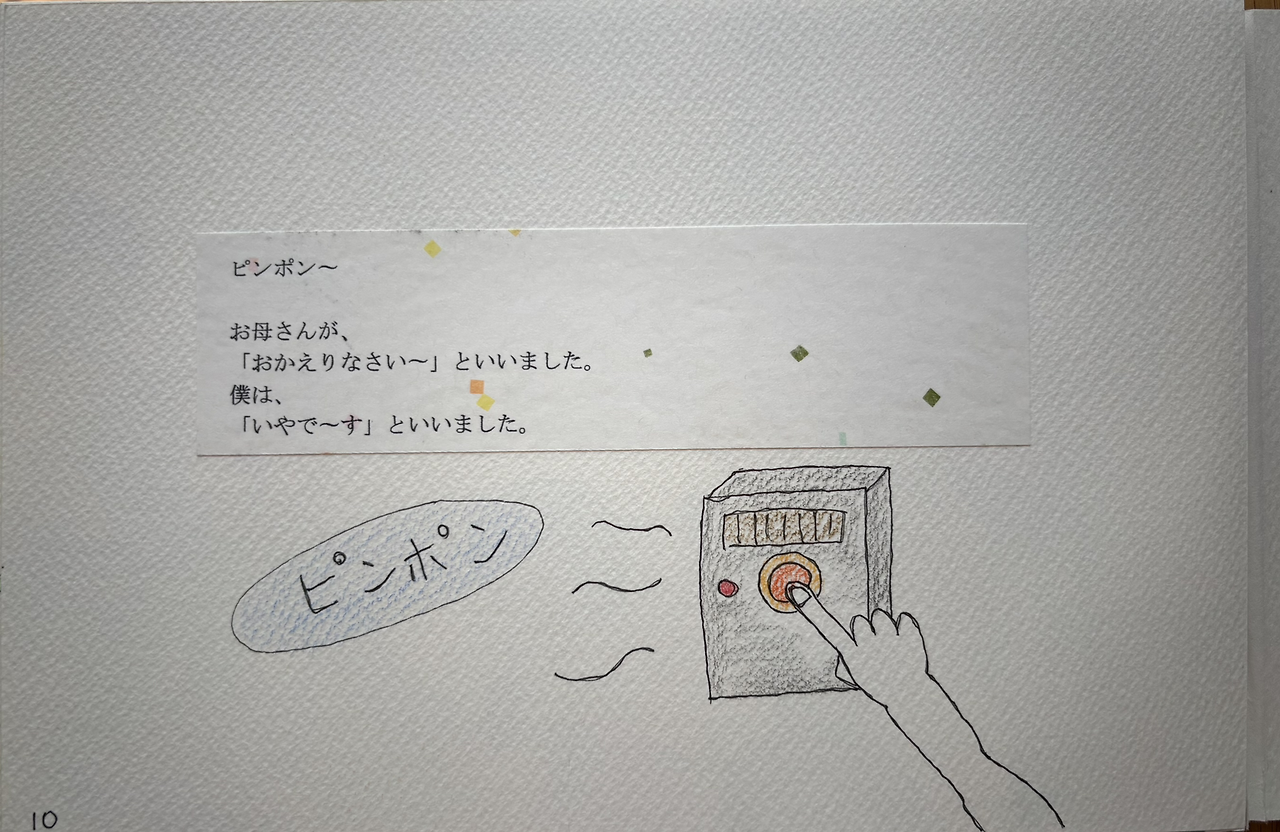 ピンポン〜
お母さんが、
「おかえりなさい〜」といいました。
僕は、
「いやで〜す」といいました。
ピンポン
10